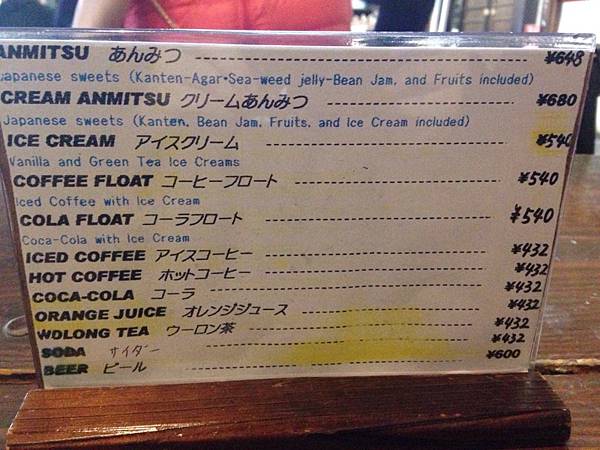 ANMITSU あんみつ ¥648
Japanese sweets (Kanten-Agar•Sea-weed jelly-Bean Jam, and Fruits included)
CREAM ANMITSU クリームあんみつ ¥680
Japanese sweets (Kanten, Bean Jam, Fruits, and Ice Cream included)
ICE CREAM アイスクリーム ¥540
Vanilla and Green Tea Ice Creams
COFFEE FLOAT コーヒーフロート ¥540
Iced Coffee with Ice Cream
COLA FLOAT コーラフロート ¥540
Coca-Cola with Ice Cream
ICED COFFEE アイスコーヒー ¥432
HOT COFFEE ホットコーヒー ¥432
COCA-COLA コーラ ¥432
ORANGE JUICE オレンジジュース ¥432
WOLONG TEA ウーロン茶 ¥432
SODA サイダー ¥432
BEER ビール ¥600